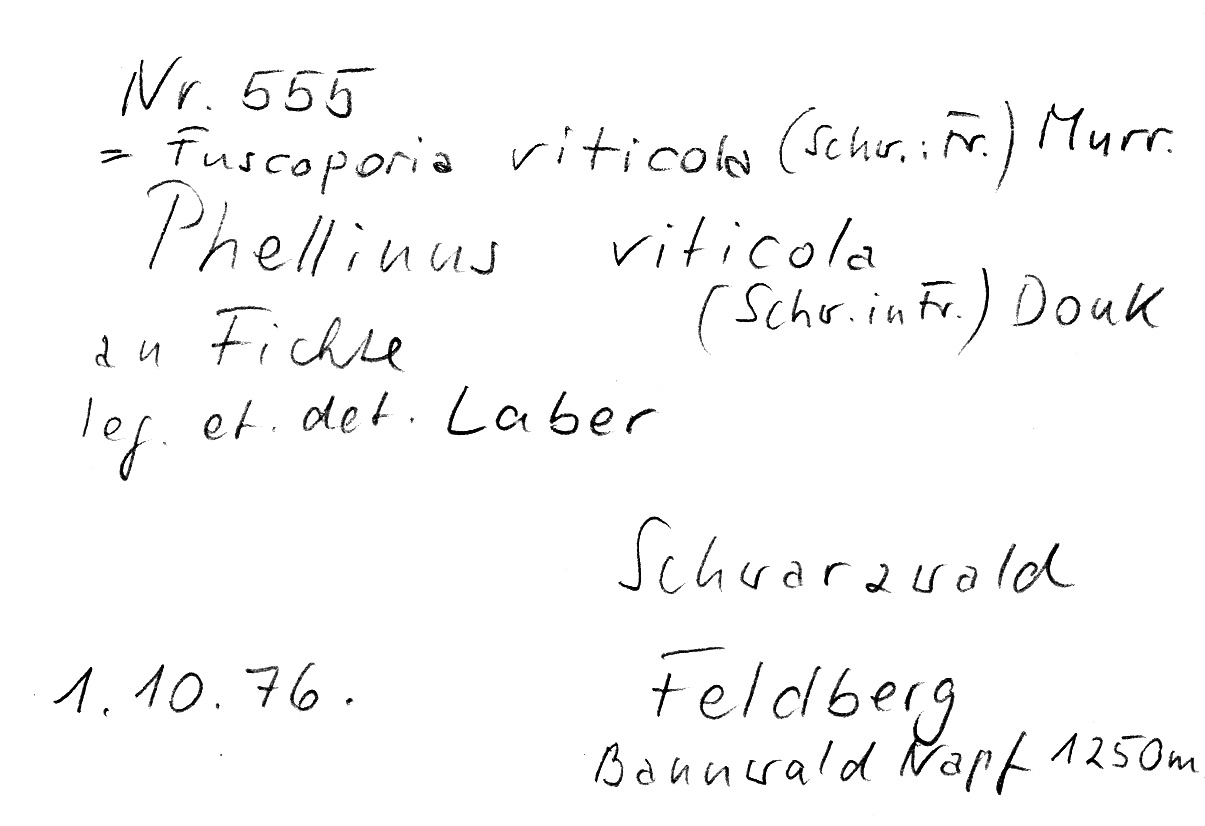 Nr. 555
= Fuscoporia viticola (Schw.: Fr.) Murr.
Phellinus viticola
(Schw. in Fr.) Donk
an Fichte
leg. et. det. Laber
Schwarzwald
1.10.76. Feldberg
Bannwald Napf 1250m